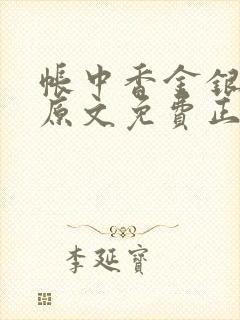 帳中香金銀
原文免費正
李延寶